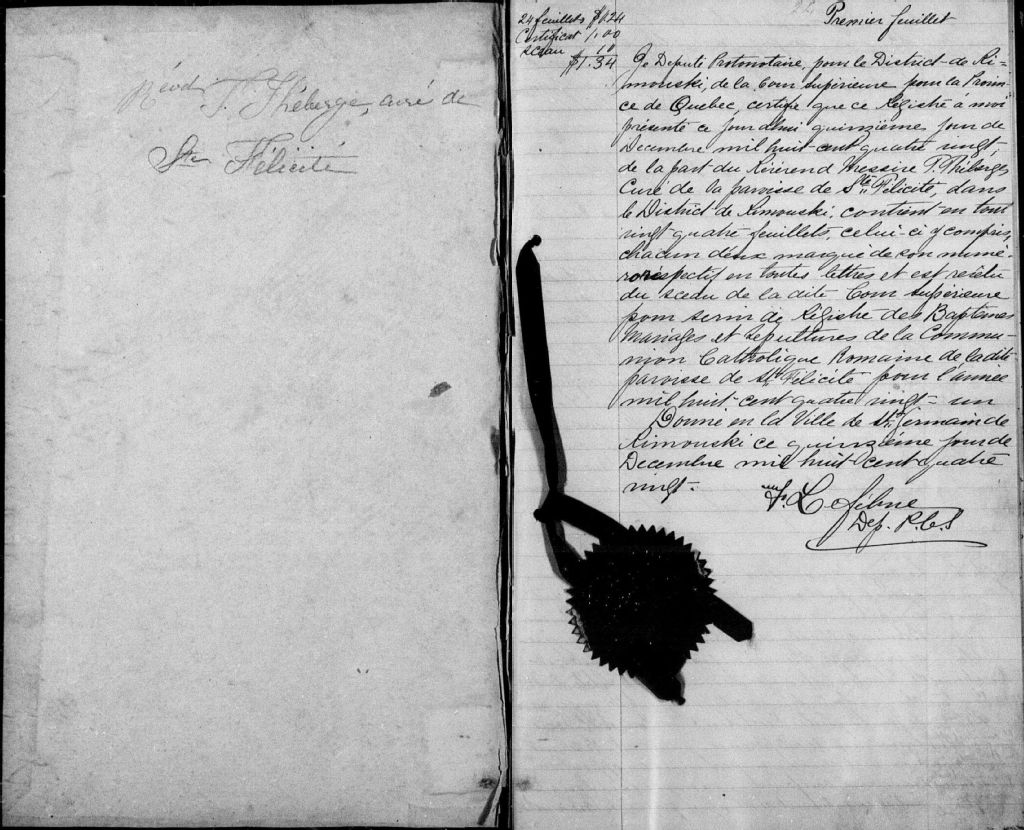 Révd T. Théberge, curé de
Ste Félicité
24 feuillets $0.24
Certificat 1.00
Sceau 10
$1.34
Premier feuillet
Je Deputé Protonotaire, pour le District de Ri-
mouski, de la Cour Supérieure pour la Provin-
ce de Quebec, certifie que ce Régistre à moi
présenté ce jour d'hui quinzième jour de
Decembre mil huit cent quatre vingt,
de la part du Révérend Messire T. Théberge,
Curé de la paroisse de Ste Félicité, dans
le District de Rimouski, contient en tout
vingt quatre feuillets, celui-ci y compris,
chacun d'eux marqué de son numé-
ro respectif en toutes lettres et est revêtu
du sceau de la dite Cour Supérieure
pour servir de Régistre des Baptêmes
Mariages et Sepultures de la Commu-
nion Catholique Romaine de la dite
paroisse de Ste Félicité pour l'année
mil huit-cent quatre vingt-un
Donné en la Ville de St Germain de
Rimouski ce quinzième jour de
Decembre mil huit cent quatre
vingt-
Dep. P.C.S